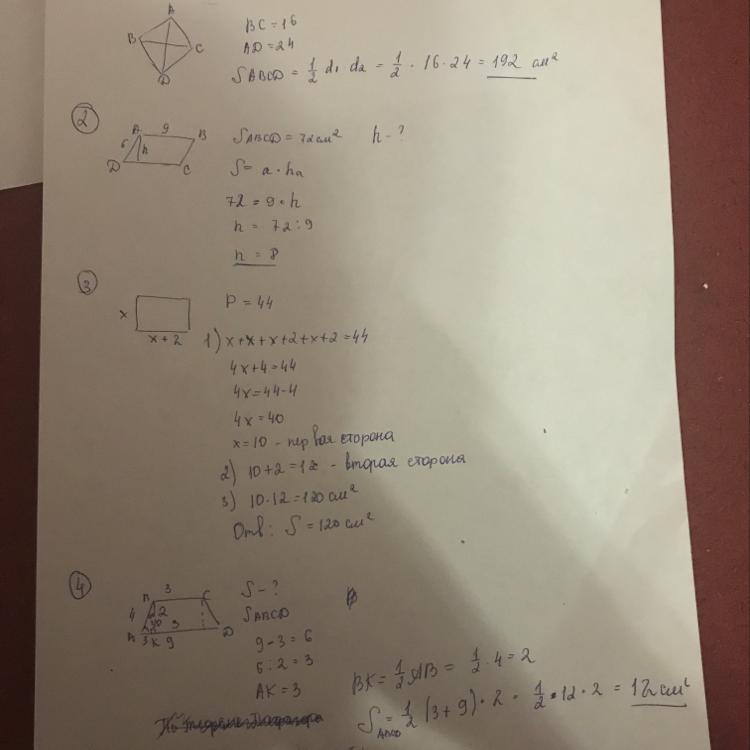 A
B
C
D
BC = 16
AD = 24
S ABCD = 1/2 d1 d2 = 1/2 · 16 · 24 = 192 см²
2
A 9 B
6 h
D C
S ABCD = 72 см² h - ?
S = a · ha
72 = 9 · h
h = 72 : 9
h = 8
3
x
x + 2
P = 44
1) x + x + x + 2 + x + 2 = 44
4x + 4 = 44
4x = 44 - 4
4x = 40
x = 10 - первая сторона
2) 10 + 2 = 12 - вторая сторона
3) 10 · 12 = 120 см²
Отв: S = 120 см²
4
3
B C
4 2
30 3
A 3 K 9 D
S - ?
S ABCD
9 - 3 = 6
6 : 2 = 3
AK = 3
BK = 1/2 AB = 1/2 · 4 = 2
S ABCD = 1/2 (3 + 9) · 2 = 1/2 · 12 · 2 = 12 см²